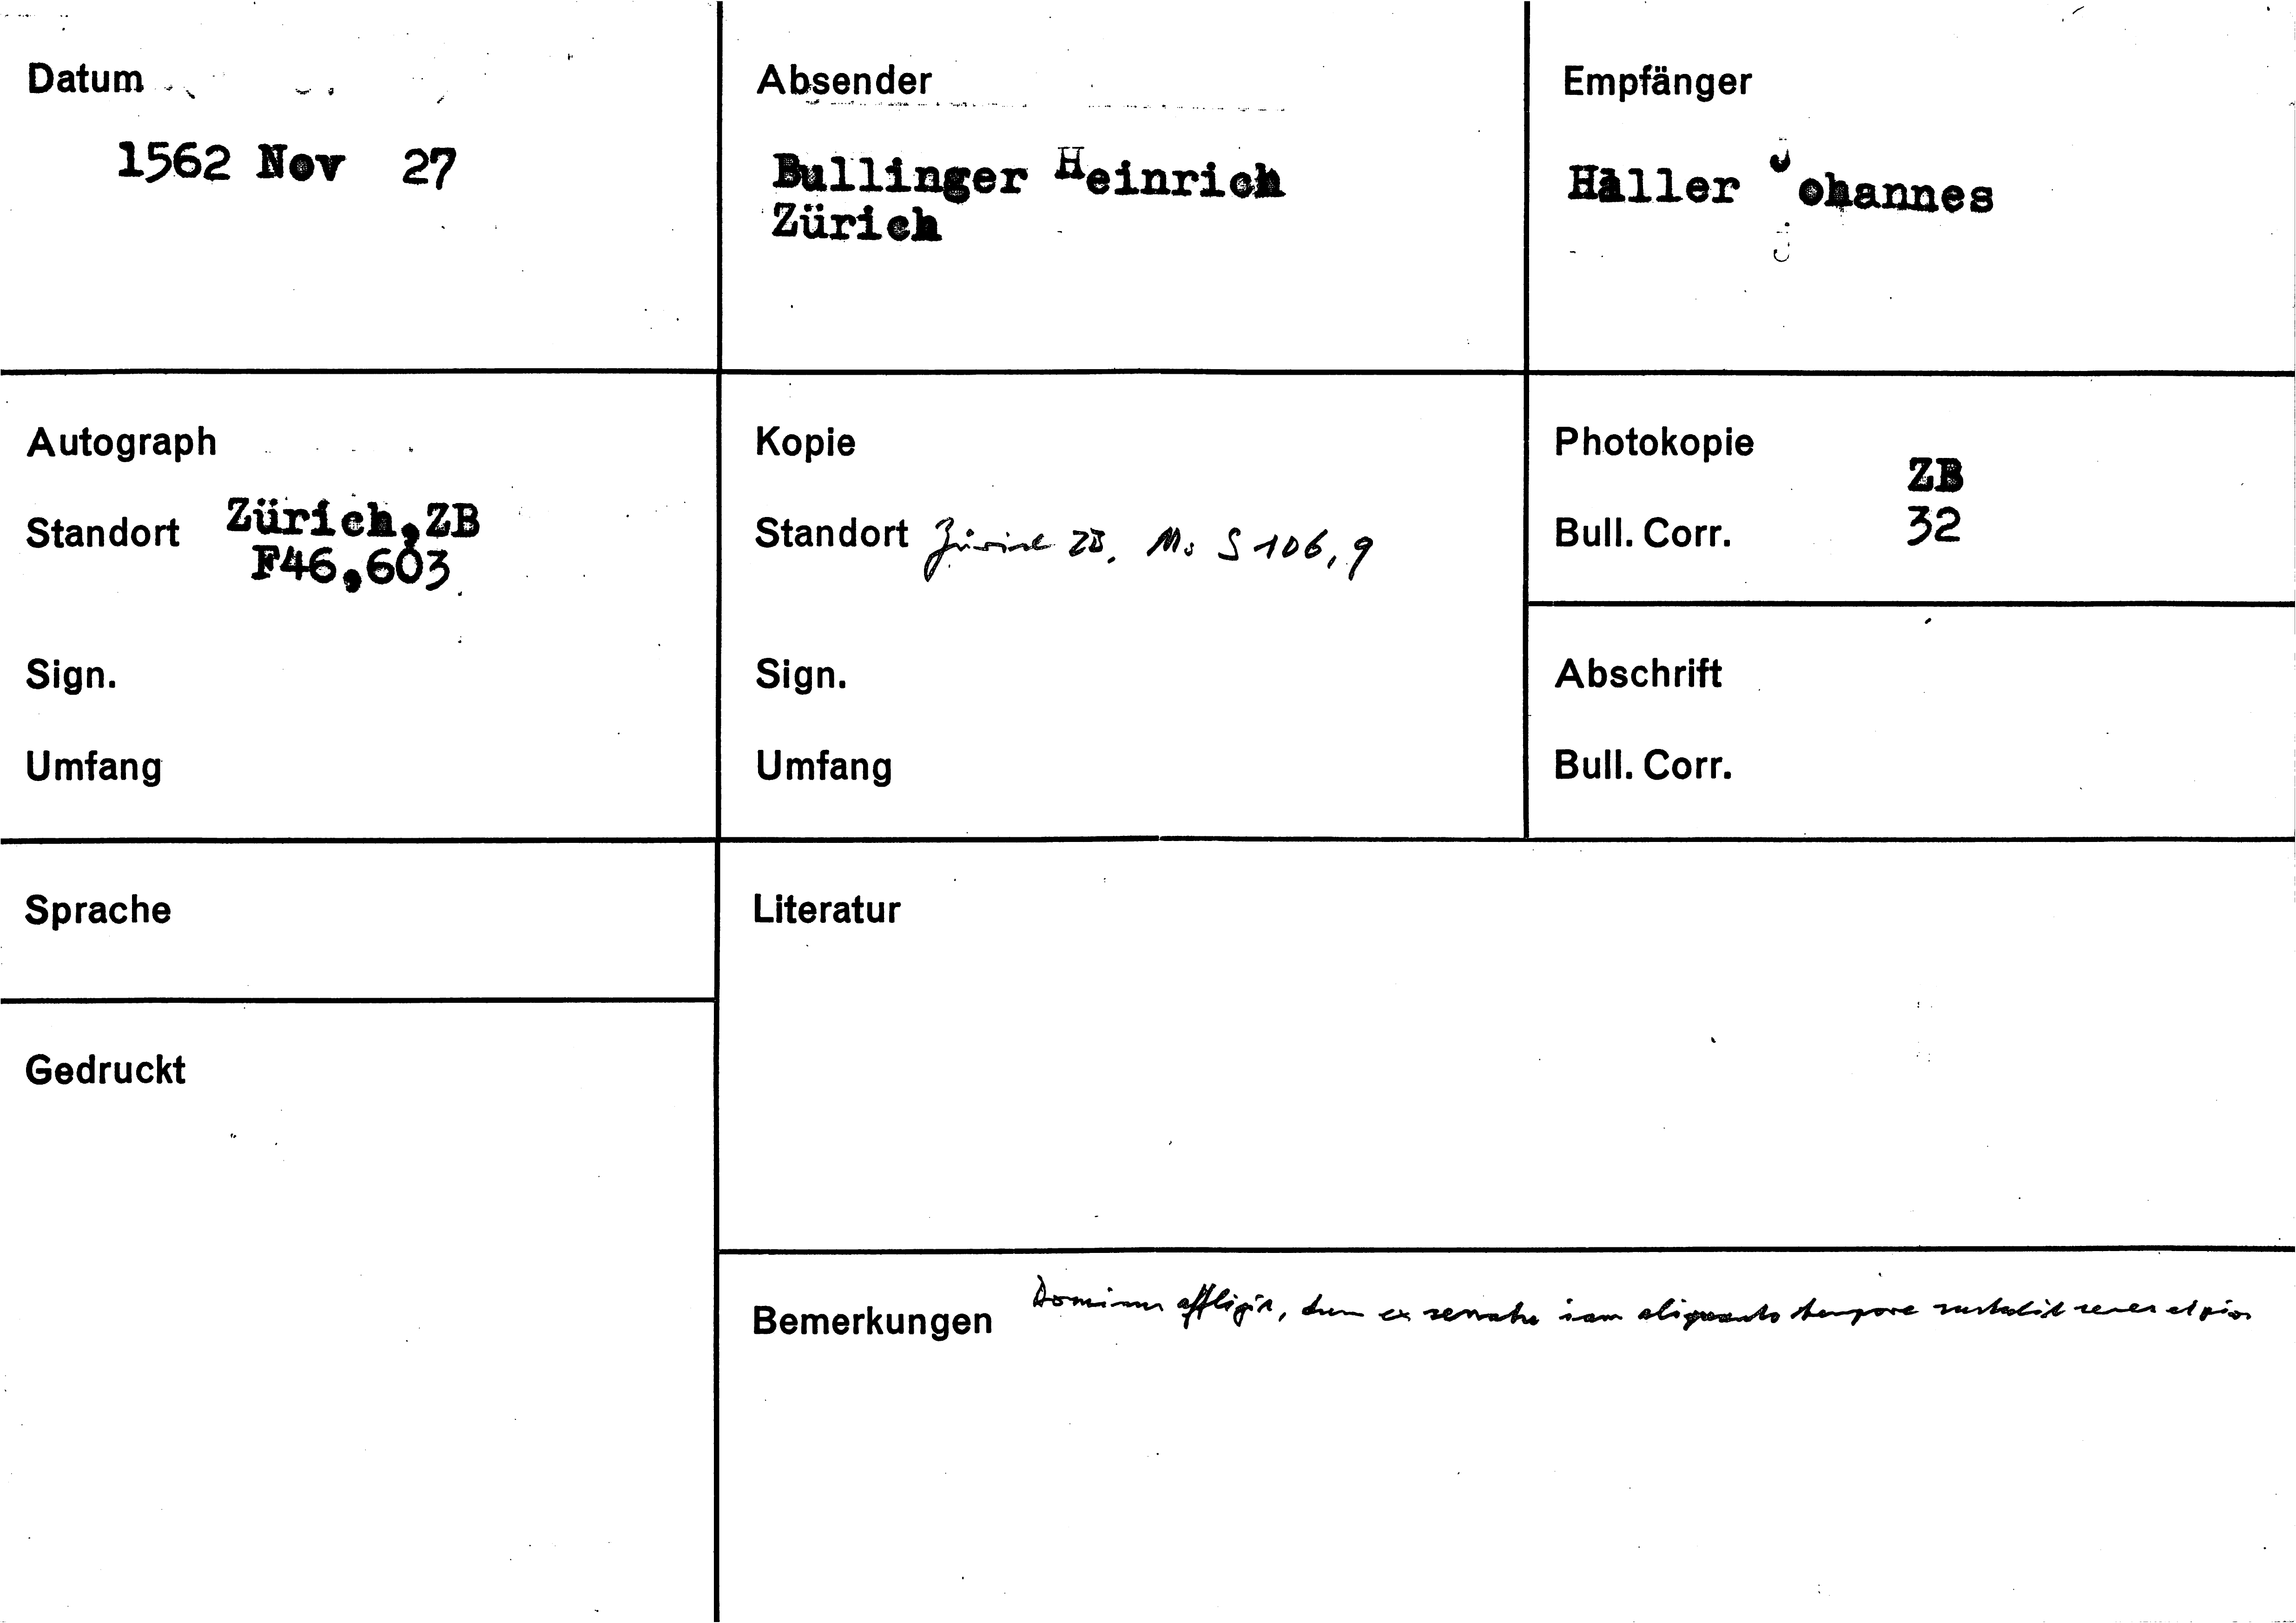 Datum
1562 Nov 27
Absender
Bullinger Heinrich
Zürich
Empfänger
Haller Johannes
Autograph
Standort Zürich, ZB
F46,603
Sign.
Umfang
Kopie
Standort Zürich ZB, Ms S 106, 9
Sign.
Umfang
Photokopie
ZB
Bull. Corr. 32
Abschrift
Bull. Corr.
Sprache
Literatur
Gedruckt
Bemerkungen Dominus affligit, dum ex senatu iam aliquanto tempore sustulit senes et pios